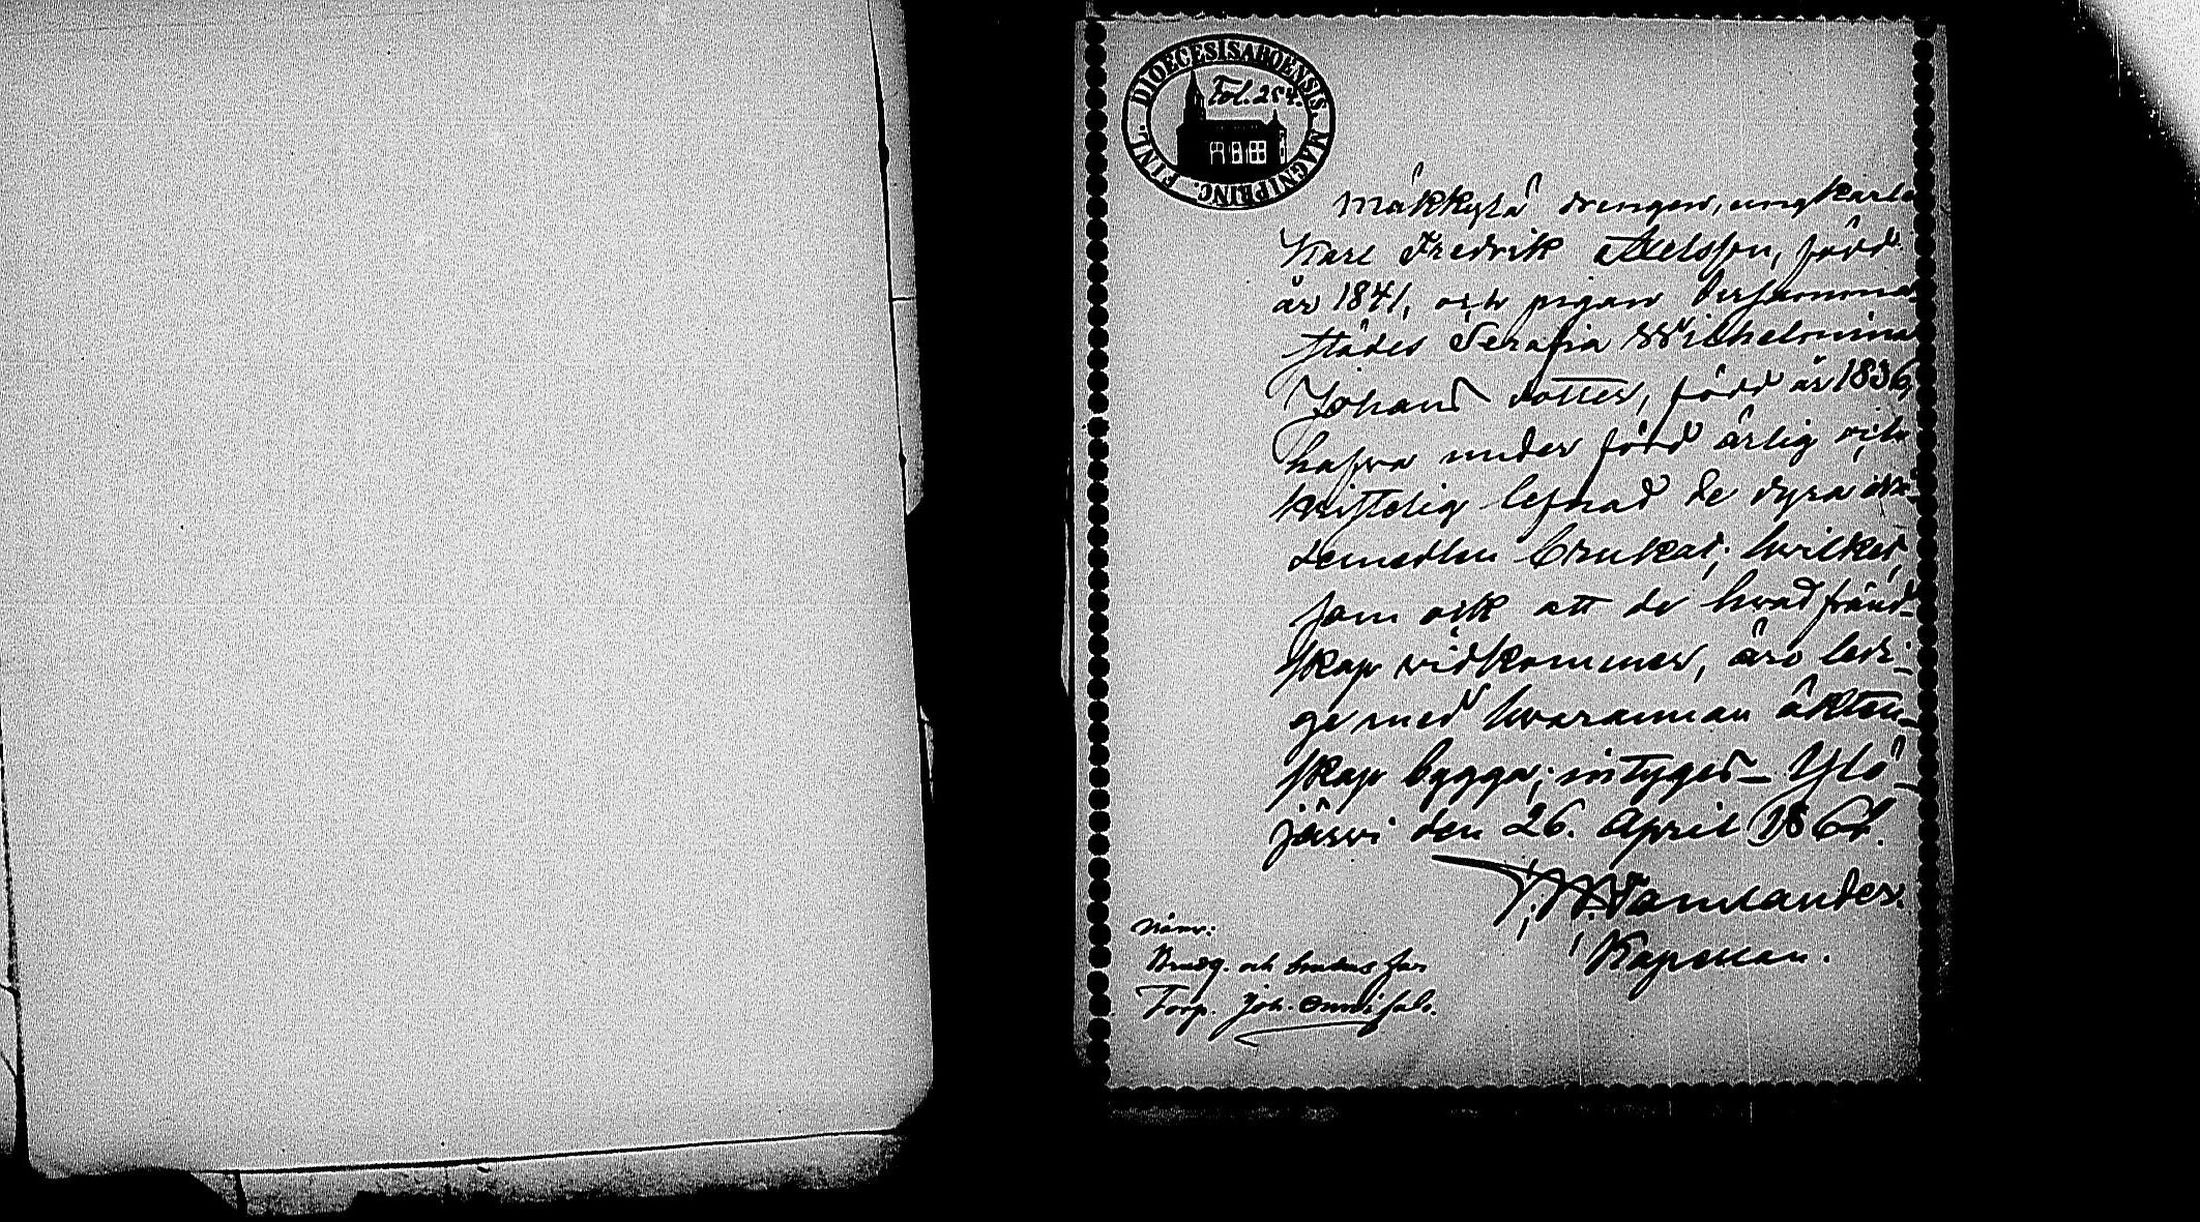 DIOECESIS ABOENSIS. MAGNI PRINC. FINL.
Fol. 254.
Mäkkylä drengen, ungkarln
Karl Fredrik Axelsson, född
år 1841, och pigan dersamma-
städes Serafia Wilhelmina
Johans dotter, född år 1836,
hafva under förd ärlig och
kristelig lefnad de dyra nå-
demedlen brukat; hvilket,
som ock att de hvad fränd-
skap vidkommer, äro ledi-
ge med hvarannan äkten-
skap bygga; intygas_ Ylö-
järvi den 26. April 186
Tamlander.
Kapellan.
Närv:
Brudg. och brudens far
Torp. Joh.